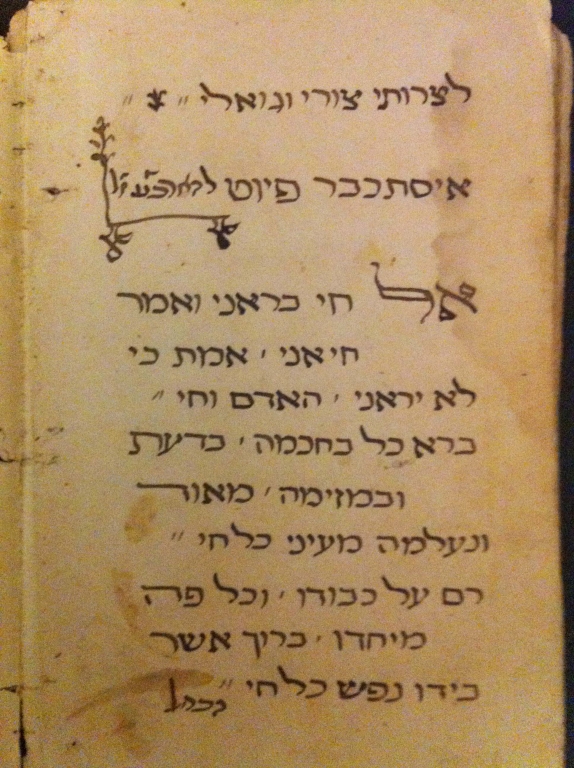 לצרותי צורי וגואלי ״ * ״
איסתכבר פיוט
אל חי בראני ואמר
חי אני ׳ אמת כי
לא יראני ׳ האדם וחי ״
ברא כל בחכמה ׳ בדעת
ובמזימה ׳ מאוד
ונעלמה מעיני כל חי ״
רם על כבודו ׳ וכל פה
מיחדו ׳ בריך אשר
בידו נפש כל חי ״